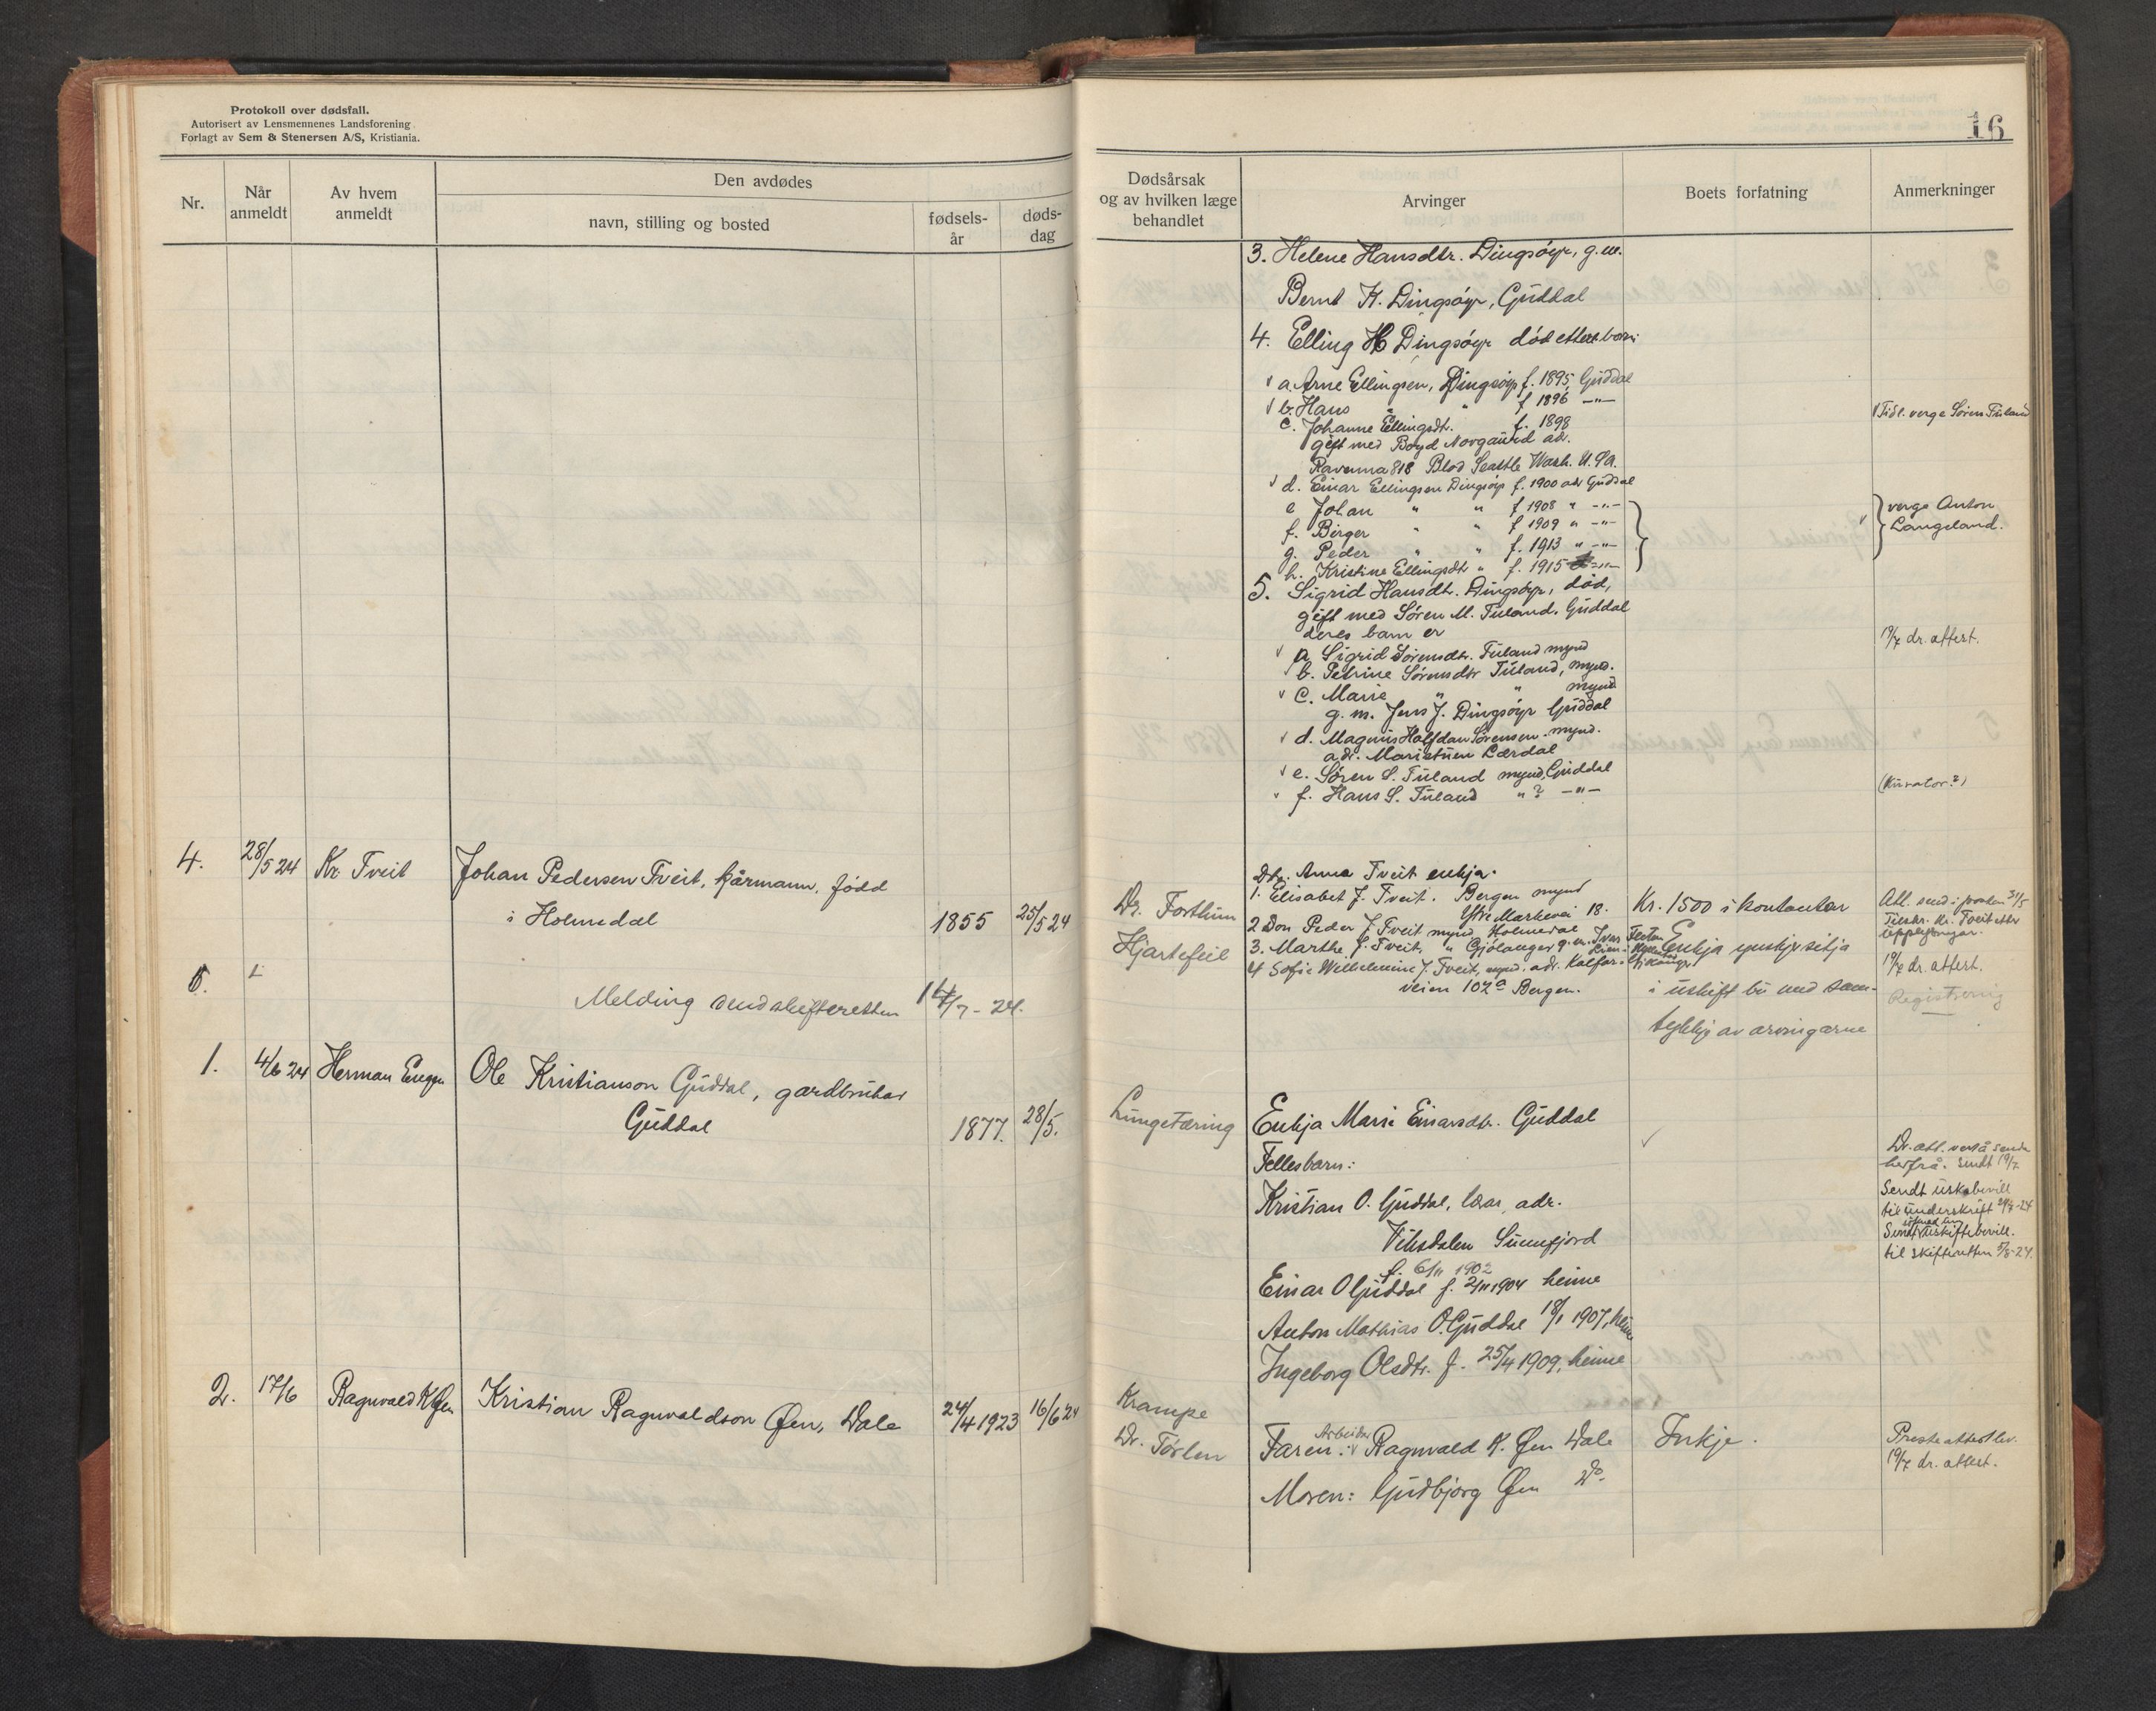 Protokoll over dødsfall.
Autorisert av Lensmennenes Landsforening
Forlagt av Sem & Stenersen A/S, Kristiania.
Nr.
Når anmeldt
Av hvem anmeldt
Den avdødes
navn, stilling og bosted
fødsels-år
døds-dag
4.
28/5 24
Kr. Tveit
Johan Pedersen Tveit, kårmann, fødd
i Holmedal
1855
25/5 24
Melding send skifteretten 14/7-24.
1.
4/6 24
Herman
Ole Kristianson Guddal, gardbrukar
Guddal
1877.
28/5.
2.
17/6
Ragnvald K Øen
Kristian Ragnvaldson Øen, Dale
24/4 1923
16/6 24
16
Dødsårsak
og av hvilken læge
behandlet
Arvinger
Boets forfatning
Anmerkninger
3. Helene Hansdtr. Dingsøyr, g.m.
Bernt K. Dingsøyr, Guddal
4. Elling H Dingsøyr død etterl. born:
a. Arne Ellingsen, Dingsøyr f. 1895, Guddal
b. Hans " " f 1896 -"-
Tidl. verge Søren Tuland
c. Johanne Ellingsdtr. f. 1898
gift med Boyd Norgaurd adr.
Ravenna 818 Blvd Seattle Wash. U.S.A.
d. Einar Ellingsen Dingsøyr f. 1900 adr Guddal
e Johan " " f 1908 " -"-
f. Birger " " f 1909 " -"-
g. Peder " " f. 1913 " -"-
h. Kristine Ellingsdtr " f. 1915 -"-
verge Anton
Langeland.
5. Sigrid Hansdtr. Dingsøyr, død,
gift med Søren M. Tuland, Guddal
deres barn er
19/7 dr. attest.
a Sigrid Sørensdtr. Tuland mynd
b. Petrine Sørensdtr Tuland, mynd.
c. Marie " " mynd
g.m. Jens J. Dingsøyr Guddal
d. Magnus Halfdan Sørensen. mynd.
adr. Maristuen Lærdal
e. Søren S. Tuland mynd, Guddal
f. Hans S. Tuland " ? -"-
(Kurator?)
Dr. Forthun
Hjartefeil
Anna Tveit enkja.
1. Elisabet J. Tveit. Bergen mynd
Ytre Markevei 18.
2 Don Peder J Tveit mynd Holmedal
3. Marthe J. Tveit, " Gjølanger g.m. Ivar
4 Sofie Wilhelmine J. Tveit, mynd. adr. Kalfar-
veien 102a Bergen.
Kr. 1500 i kontantar
Enkja ynskjer sitja
i uskift bu med sam-
tykkje av arvingarne
Att. send i posten 31/5
Tilskr. Kr. Tveit etter
upplysningar.
19/7 dr. attest.
Registrering
Lungetæring
Enkja Marie Einarsdtr. Guddal
Fellesbarn:
Kristian O. Guddal, lærar, adr.
Viksdalen Sunnfjord
f. 6/11 1902
Einar O Guddal f. 2/11 1904 heime
Anton Mathias O. Guddal 18/1 1907, heime
Ingeborg Olsdtr. f. 25/4 1909, heime
Dr. att. vert å senda
herfrå. Sendt 19/7
Sendt uskiftebevill
til underskrift
Sendt uskiftebevill.
til skifteretten 5/8-24.
Krampe
Dr. Tørlen
Arbeidar
Faren: Ragnvald K. Øen Dale
Moren: Gudbjørg Øen Do.
Inkje.
Presteattest lev.
19/7 dr. attest.